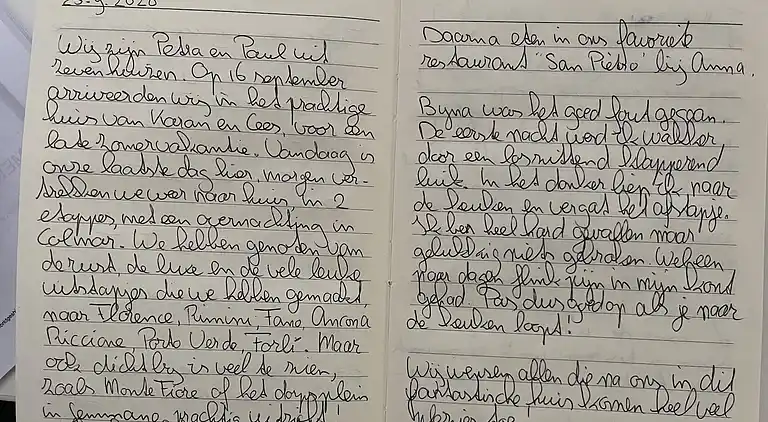 23-9-2020
Wij zijn Petra en Paul uit
Zevenhuizen. Op 16 september
arriveerden wij in het prachtige
huis van Karan en Cees, voor een
late zomervakantie. Vandaag is
onze laatste dag hier, morgen ver-
trekken we weer naar huis, in 2
etappes, met een overnachting in
Colmar. We hebben genoten van
de rust, de luxe en de vele leuke
uitstapjes die we hebben gemaakt,
naar Florence, Rimini, Fano, Ancona
Riccione, Porto Verde, Forlì. Maar
ook dichtby is veel te zien,
zoals Monte Fiore of het dorpsplein
in Gemmano, prachtig uitzicht!
Daarna eten in ons favoriete
restaurant "San Pietro" bij Anna.
Byna was het goed fout gegaan.
De eerste nacht werd ik wakker
door een loszittend klapperend
luik. In het donker liep ik naar
de keuken en vergat het afstapje.
Ik ben heel hard gevallen maar
gelukkig niets gebroken. Wel een
paar dagen flink pijn in mijn kont
gehad. Pas dus goed op als je naar
de keuken loopt!
Wij wensen allen die na ons in dit
fantastische huis komen heel veel